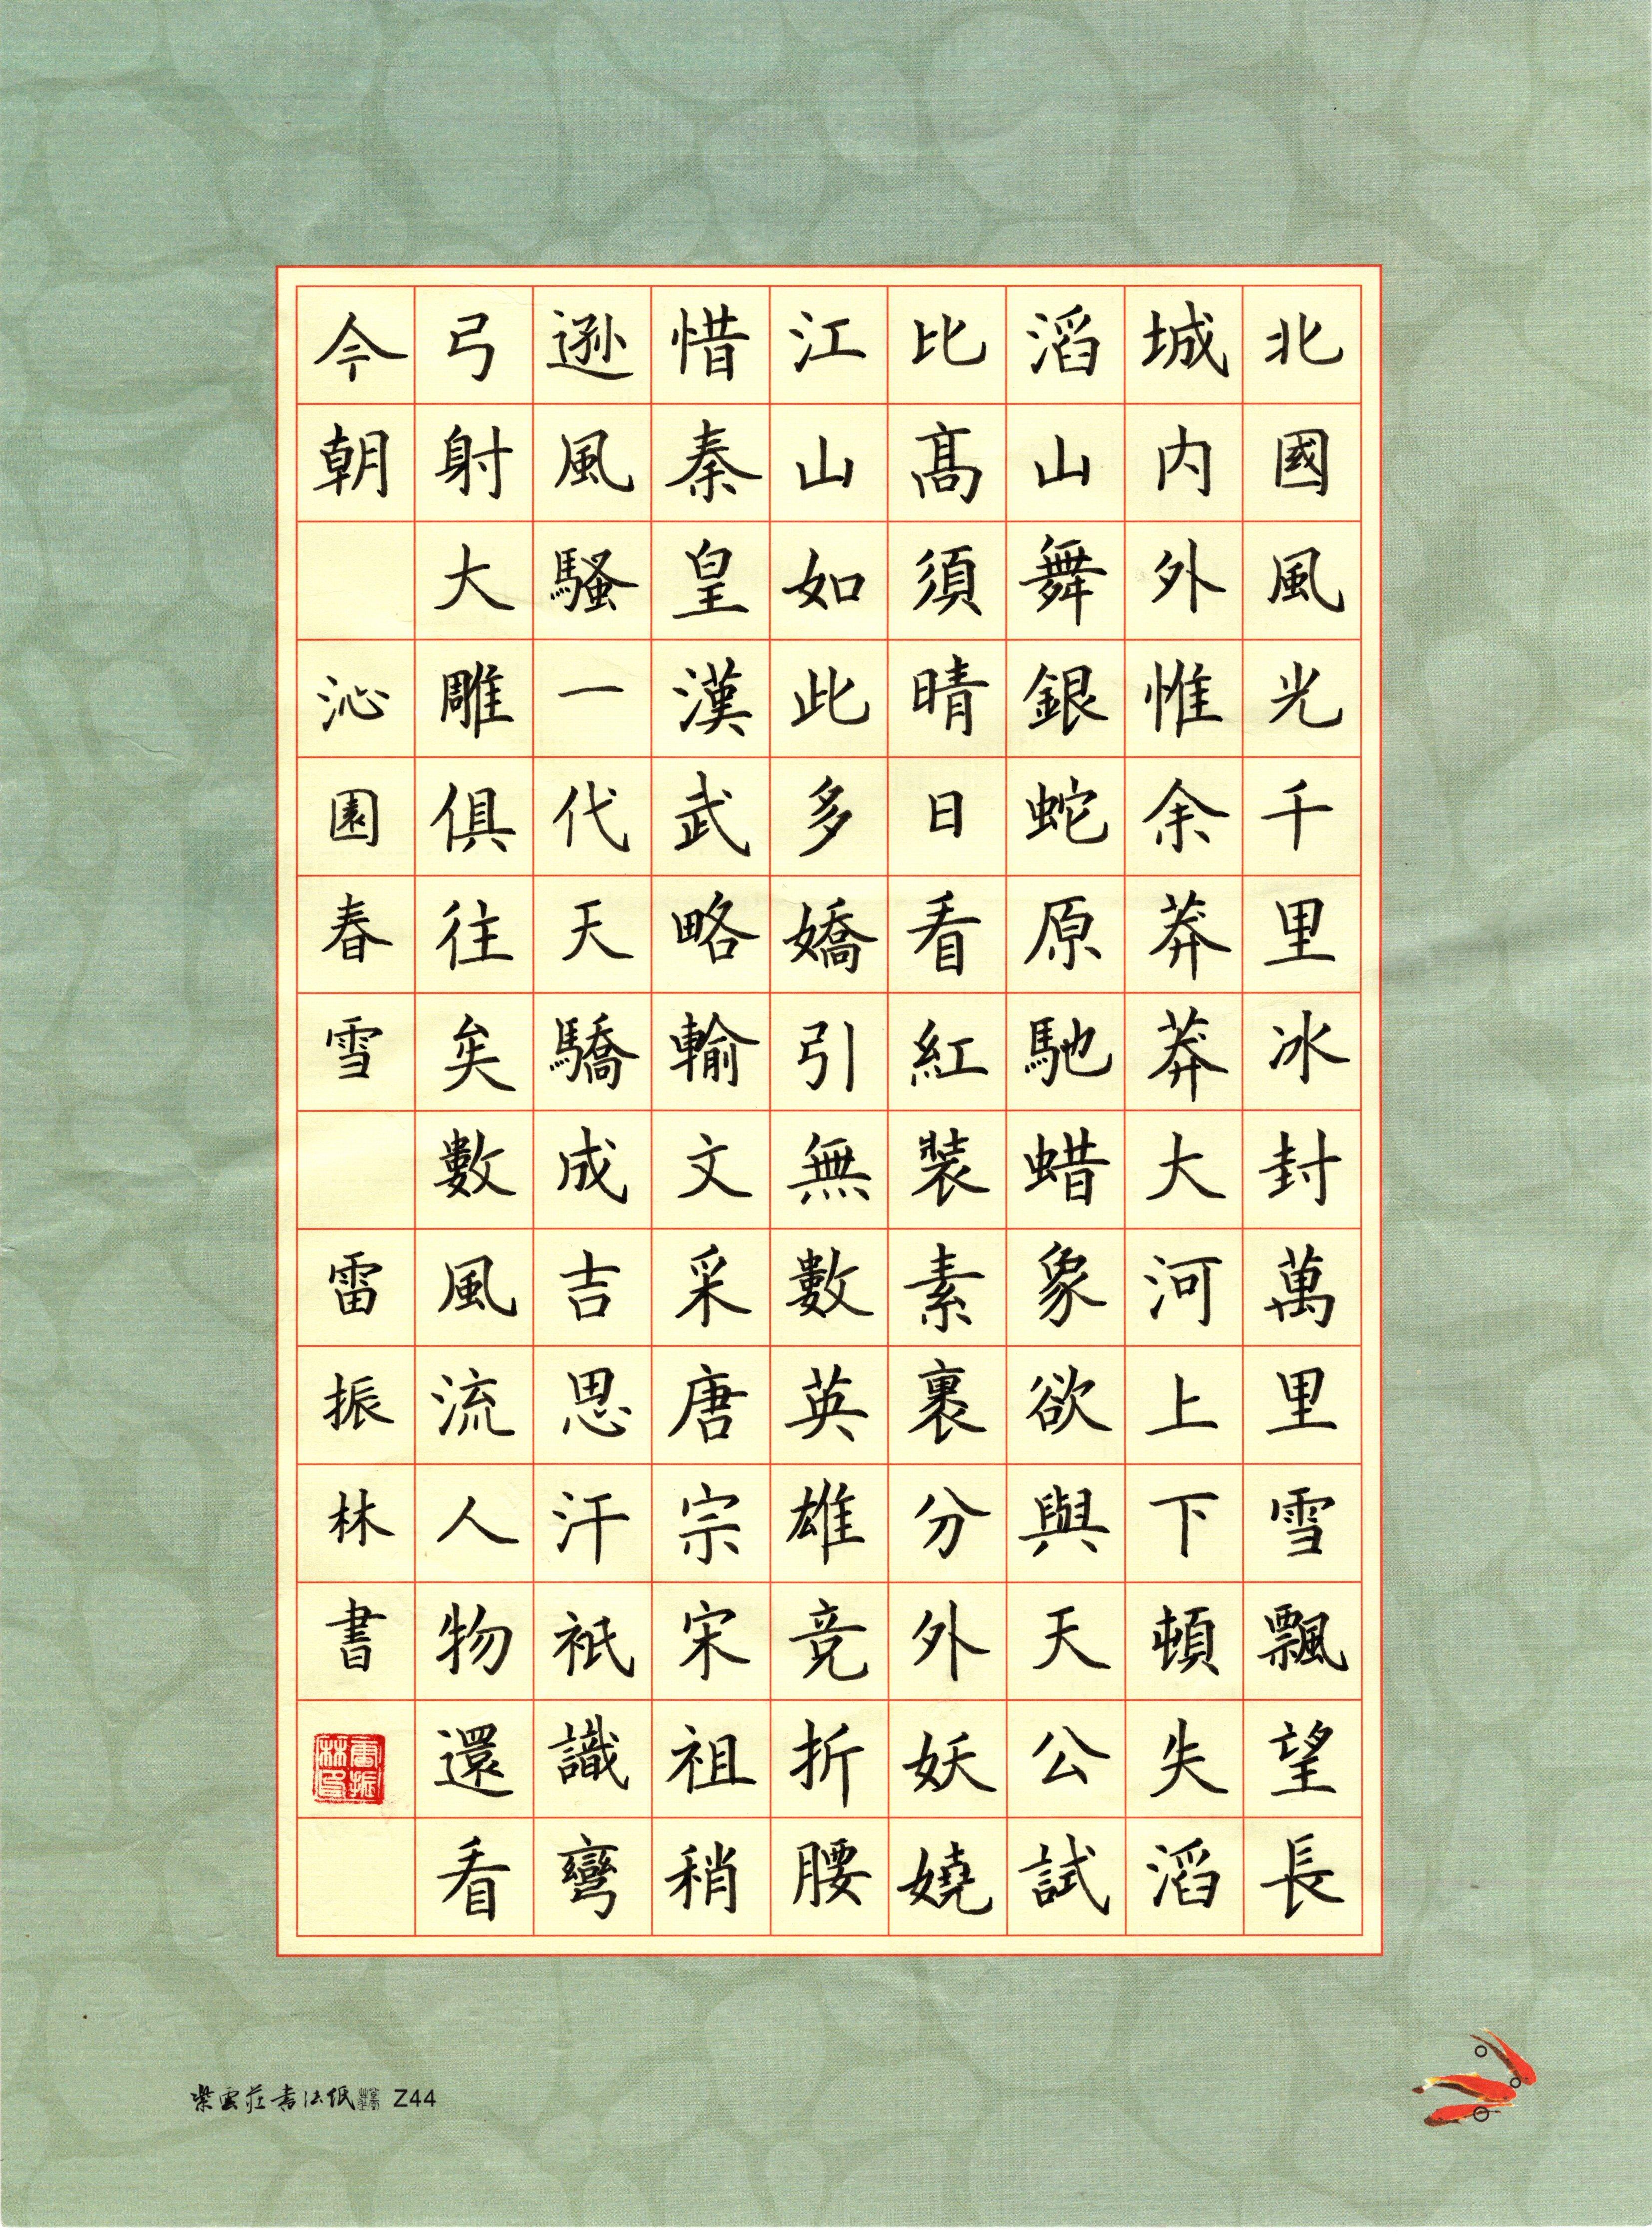 北國風光千里冰封萬里雪飄望長
城内外惟余莽莽大河上下頓失滔
滔山舞銀蛇原馳蜡象欲與天公試
比髙須晴日看紅裝素裹分外妖嬈
江山如此多嬌引無數英雄竞折腰
惜秦皇漢武略輸文采唐宗宋祖稍
遜風騷一代天驕成吉思汗衹識彎
弓射大雕俱往矣數風流人物還看
今朝 沁園春雪 雷振林書
雷振林印
紫雲莊书法纸 Z44